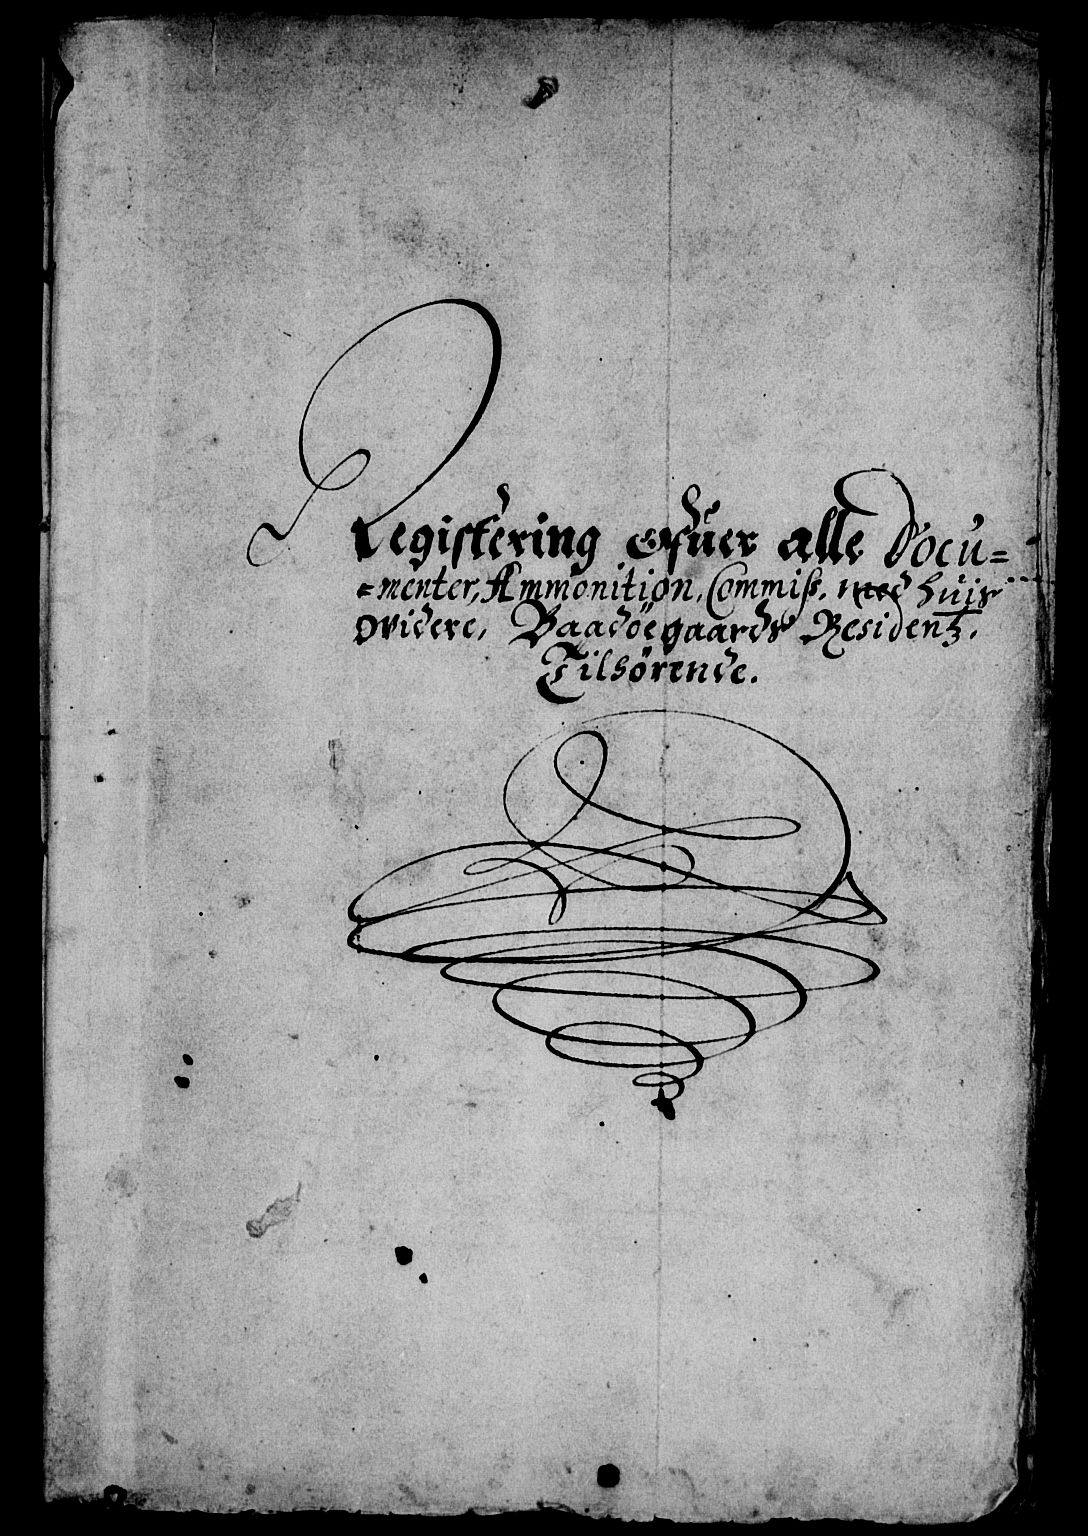 Registering Offuer alle Docu=
=menter, Ammonition, Commiß, med huis
Widere, Baadöegaards Residentz,
Tilhörende.